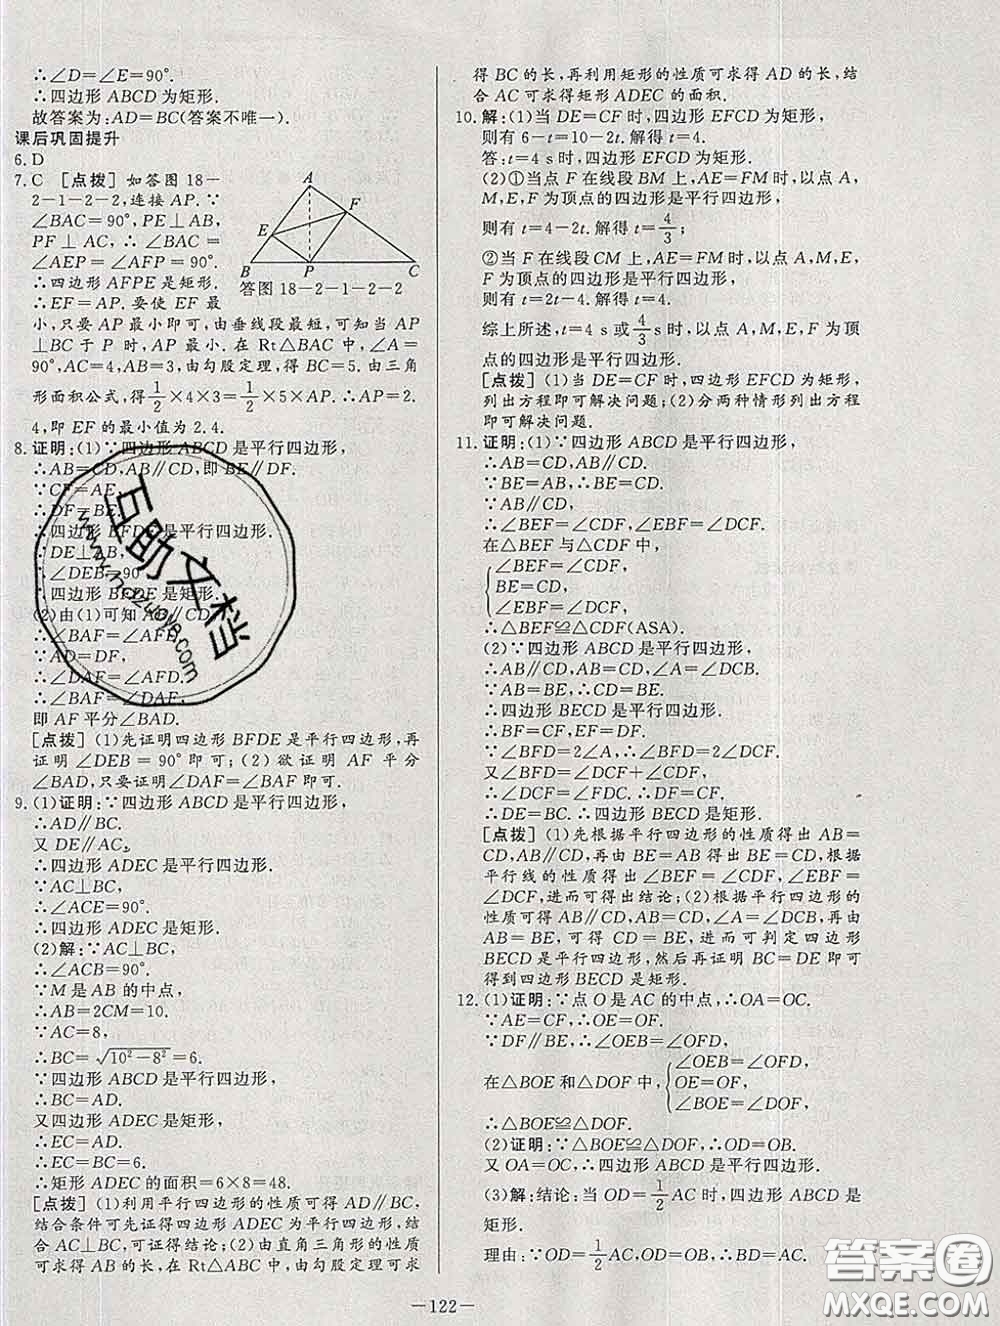 ∴∠D=∠E=90°.
∴四边形 ABCD 为矩形.
故答案为:AD=BC(答案不唯一).
课后巩固提升
6.D
7.C [点拨] 如答图 18-
2-1-2-2,连接 AP.∵
∠BAC=90°,PE⊥AB,
PF⊥AC,∴∠BAC=
∠AEP=∠AFP=90°.
∴四边形 AFPE 是矩形.
∴EF=AP.要使 EF 最
小,只要 AP 最小即可,由垂线段最短,可知当 AP
⊥BC 于 P 时,AP 最小.在 Rt△BAC 中,∠A=
90°,AC=4,AB=3,由勾股定理,得 BC=5.由三角
形面积公式,得1/2×4×3=1/2×5×AP.∴AP=2.
4,即 EF 的最小值为 2.4.
A
F
E
B
P
C
答图 18-2-1-2-2
8.证明:(1)∵四边形 ABCD 是平行四边形,
∴AB=CD,AB∥CD,即 BE∥DF.
∵CF=AE,
∴DF=BE.
∴四边形 BFDE 是平行四边形.
∵DE⊥AB,
∴∠DEB=90°.
∴四边形 BFDE 是矩形.
(2)由(1)可知 AB∥CD,
∴∠BAF=∠AFD.
∵AD=DF,
∴∠DAF=∠AFD.
∴∠BAF=∠DAF,
即 AF 平分∠BAD.
[点拨] (1)先证明四边形 BFDE 是平行四边形,再
证明∠DEB=90°即可;(2)欲证明 AF 平分
∠BAD,只要证明∠DAF=∠BAF 即可.
9.(1)证明:∵四边形 ABCD 是平行四边形,
∴AD∥BC.
又 DE∥AC,
∴四边形 ADEC 是平行四边形.
∵AC⊥BC,
∴∠ACE=90°.
∴四边形 ADEC 是矩形.
(2)解:∵AC⊥BC,
∴∠ACB=90°.
∵M 是 AB 的中点,
∴AB=2CM=10.
∵AC=8,
∴BC=√(10²-8²)=6.
∵四边形 ABCD 是平行四边形,
∴BC=AD.
又四边形 ADEC 是矩形,
∴EC=AD.
∴EC=BC=6.
∴矩形 ADEC 的面积=6×8=48.
[点拨] (1)利用平行四边形的性质可得 AD∥BC,
结合条件可先证得四边形 ADEC 为平行四边形,结
合 AC⊥BC,可证得结论;(2)由直角三角形的性质
可求得 AB 的长,在 Rt△ABC 中,由勾股定理可求
得 BC 的长,再利用矩形的性质可求得 AD 的长,结
合 AC 可求得矩形 ADEC 的面积.
10.解:(1)当 DE=CF 时,四边形 EFCD 为矩形,
则有 6-t=10-2t.解得 t=4.
答:t=4 s时,四边形 EFCD 为矩形.
(2)①当点 F 在线段 BM 上,AE=FM 时,以点 A,
M,E,F 为顶点的四边形是平行四边形,
则有 t=4-2t.解得 t=4/3;
②当 F 在线段 CM 上,AE=FM 时,以点 A,M,E,
F 为顶点的四边形是平行四边形,
则有 t=2t-4.解得 t=4.
综上所述,t=4 s或4/3s时,以点 A,M,E,F 为顶
点的四边形是平行四边形.
[点拨] (1)当 DE=CF 时,四边形 EFCD 为矩形,
列出方程即可解决问题;(2)分两种情形列出方程
即可解决问题.
11.证明:(1)∵四边形 ABCD 是平行四边形,
∴AB=CD,AB∥CD.
∵BE=AB,∴BE=CD.
∵AB∥CD,
∴∠BEF=∠CDF,∠EBF=∠DCF.
在△BEF 与△CDF 中,
∠BEF=∠CDF,
BE=CD,
∠EBF=∠DCF,
∴△BEF≌△CDF(ASA).
(2)∵四边形 ABCD 是平行四边形,
∴AB∥CD,AB=CD,∠A=∠DCB.
∵AB=BE,∴CD=BE.
∴四边形 BECD 是平行四边形.
∴BF=CF,EF=DF.
∵∠BFD=2∠A,∴∠BFD=2∠DCF.
又∠BFD=∠DCF+∠CDF,
∴∠DCF=∠FDC.∴DF=CF.
∴DE=BC.∴四边形 BECD 是矩形.
[点拨] (1)先根据平行四边形的性质得出 AB=
CD,AB∥CD,再由 BE=AB 得出 BE=CD,根据
平行线的性质得出∠BEF=∠CDF,∠EBF=
∠DCF,进而可得出结论;(2)根据平行四边形的
性质可得 AB∥CD,AB=CD,∠A=∠DCB,再由
AB=BE,可得 CD=BE,进而可判定四边形
BECD 是平行四边形,然后再证明 BC=DE 即可
得到四边形 BECD 是矩形.
12.(1)证明:∵点 O 是 AC 的中点,∴OA=OC.
∵AE=CF,∴OE=OF.
∵DF∥BE,∴∠OEB=∠OFD,
在△BOE 和△DOF 中,
∠OEB=∠OFD,
OE=OF,
∠BOE=∠DOF,
∴△BOE≌△DOF.
(2)证明:∵△BOE≌△DOF,∴OD=OB.
又 OA=OC,∴四边形 ABCD 是平行四边形.
(3)解:结论:当 OD=1/2AC 时,四边形 ABCD 是
矩形.
理由:∵OD=1/2AC,OD=OB,∴BD=AC.
—122—
互助文档
答案圈
MXQE.COM